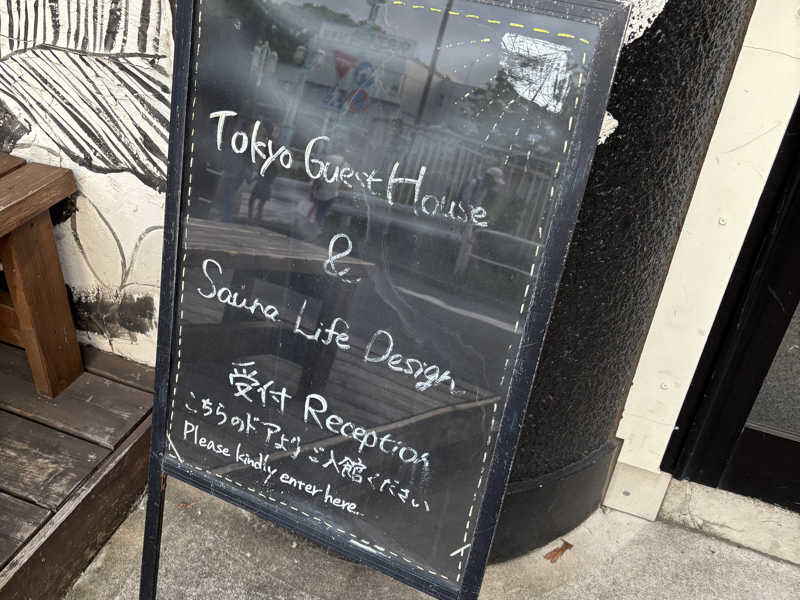 Tokyo Guest House
&
Sauna Life Design
受付 Reception
こちらのドアよりご入館ください
Please kindly enter here...